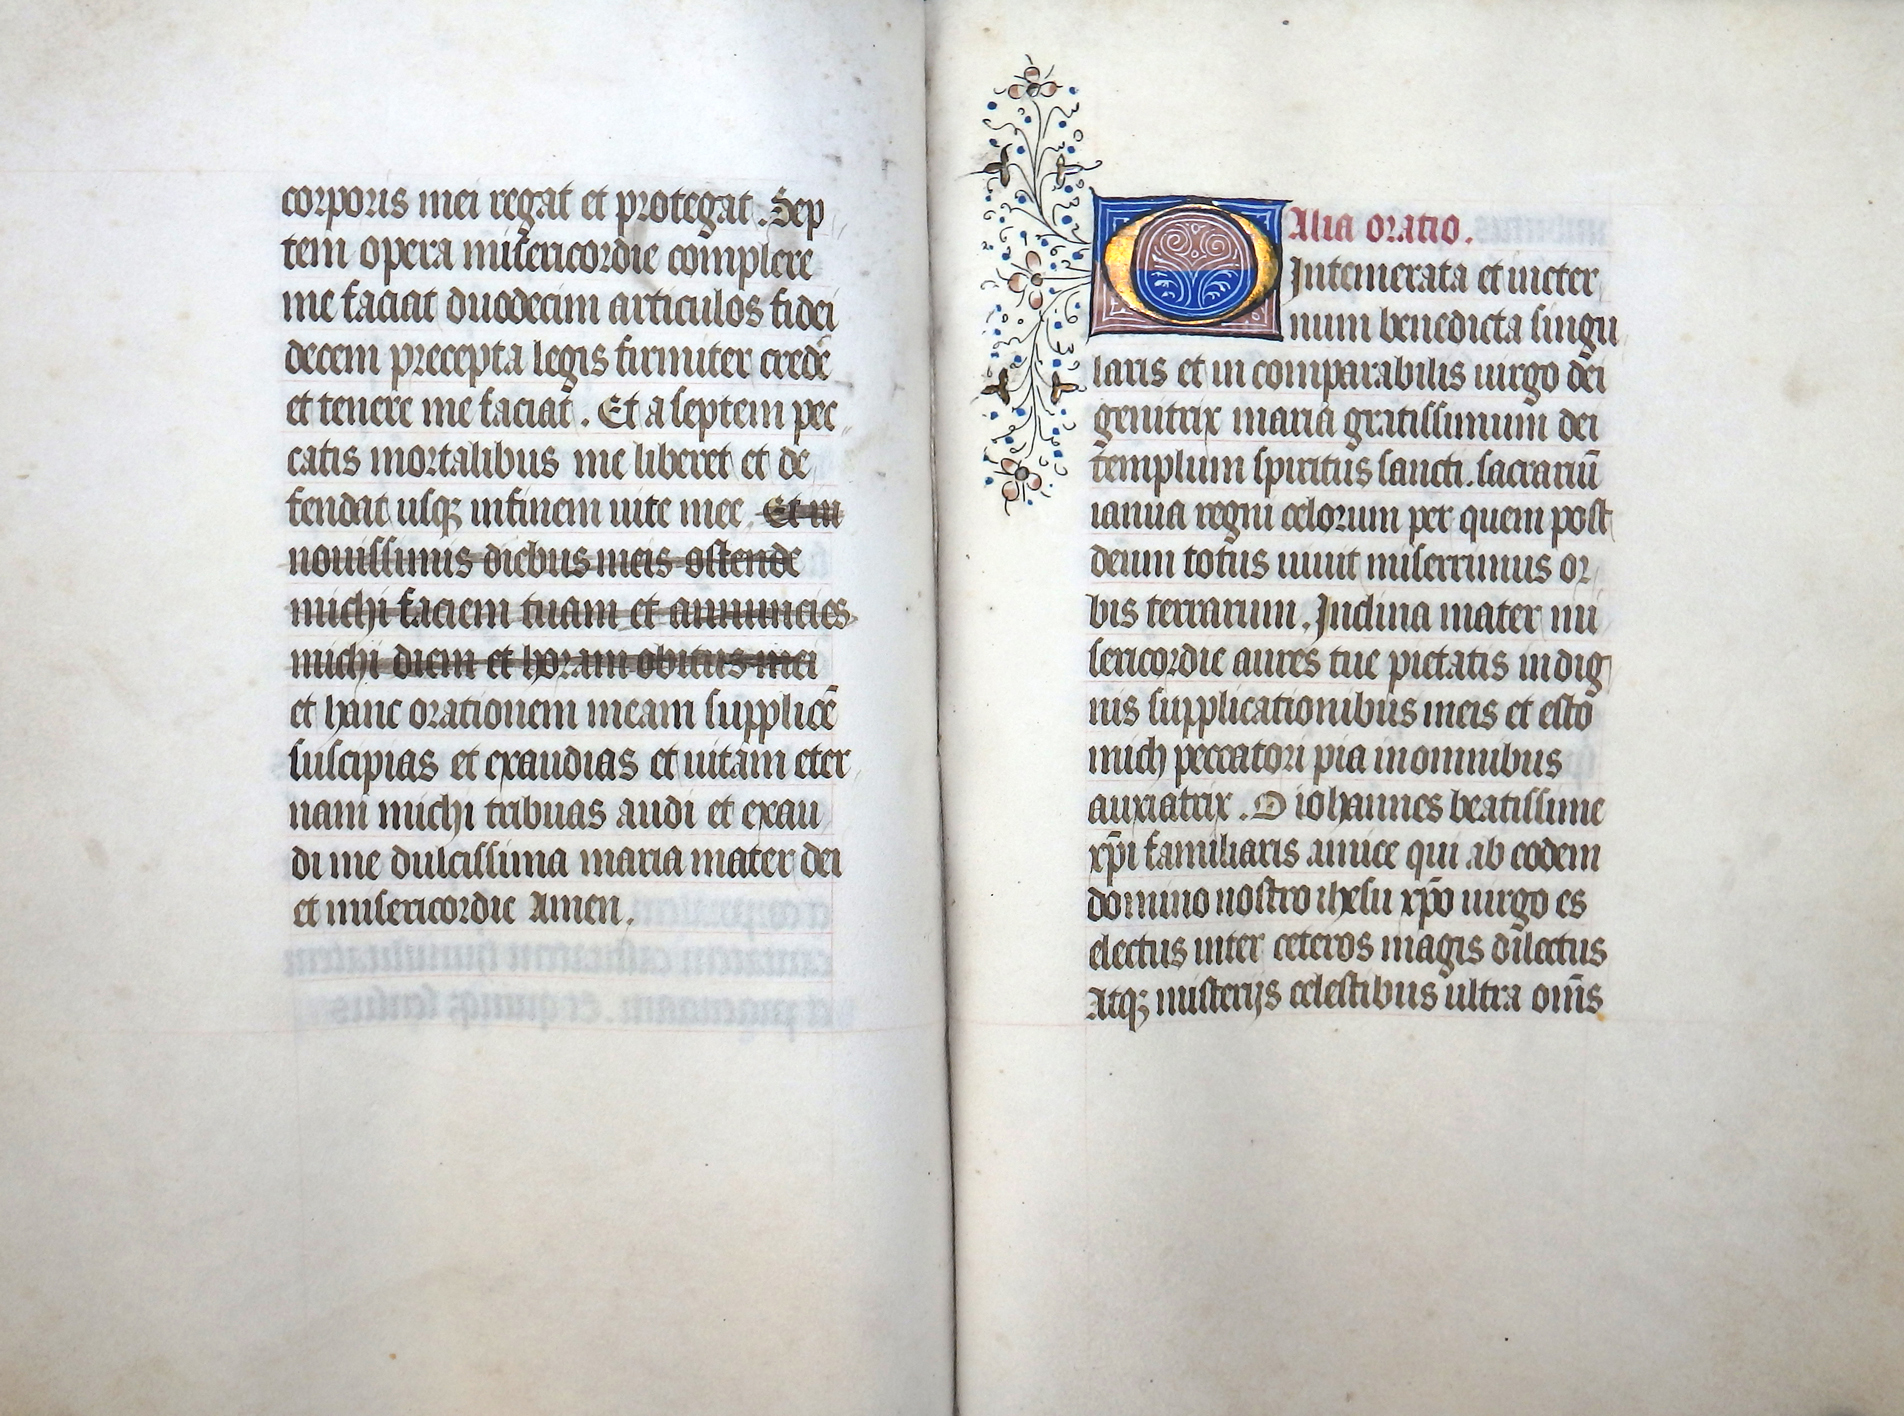 corporis mei regat et protegat . Sep
tem opera misericordie complere
me faciat duodecim articulos fidei
decem precepta legis firmiter credē
et tenere me faciat . Et a septem pec
catis mortalibus me liberet et de
fendat usqꝫ infinem uite mee . Et in
nouissimis diebus meis ostende
michi faciem tuam et annuncies
michi diem et horam obitus mei
et hanc orationem meam supplicē
suscipias et exaudias et uitam eter
nam michi tribuas audi et exau
di me dulcissima maria mater dei
et misericordie Amen .
Alia oratio .
O Intemerata et ineter
num benedicta singu
laris et in comparabilis uirgo dei
genitrix maria gratissimum dei
templum spiritus sancti . sacrariū
ianua regni celorum per quem post
deum totus uiuit miserrimus or
bis terrarum . Inclina mater mi
sericordie aures tue pietatis indig
nis supplicationibus meis et esto
mich peccatori pia inomnibus
auxiatrix . O iohannes beatissime
xp̄i familiaris amice qui ab eodem
domino nostro ihesu xp̄o uirgo es
electus inter ceteros magis dilectus
Atqꝫ misterijs celestibus ultra om̄s